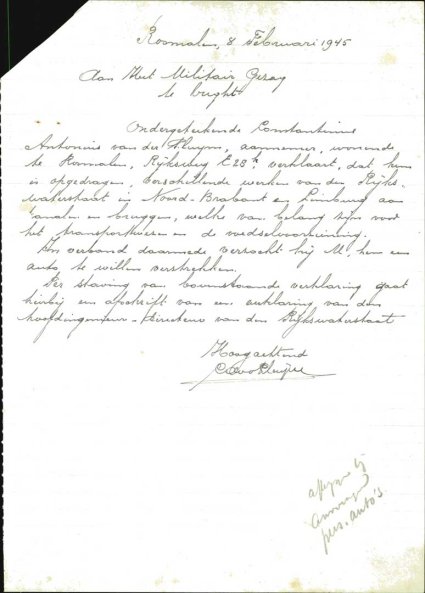 Rosmalen, 8 Februari 1945
Aan Het Militair Gezag
te Vught
Ondergetekende Constantinus
Antonius van der Pluijm, aannemer, wonende
te Romalen, Rijksweg E28, verklaart, dat hem
is opgedragen, verschillende werken van den Rijks-
waterstaat in Noord-Brabant en Limburg aan
kanalen en bruggen, welke van belang zijn voor
het transportwezen en de voedselvoorziening.
In verband daarmede verzoekt hij U, hem een
auto te willen verstrekken.
Per staving van bovenstaande verklaring gaat
hierbij een afschrift van een verklaring van den
hoofdingenieur-Directeur van den Rijkswaterstaat
Hoogachtend
bij
pers. auto's